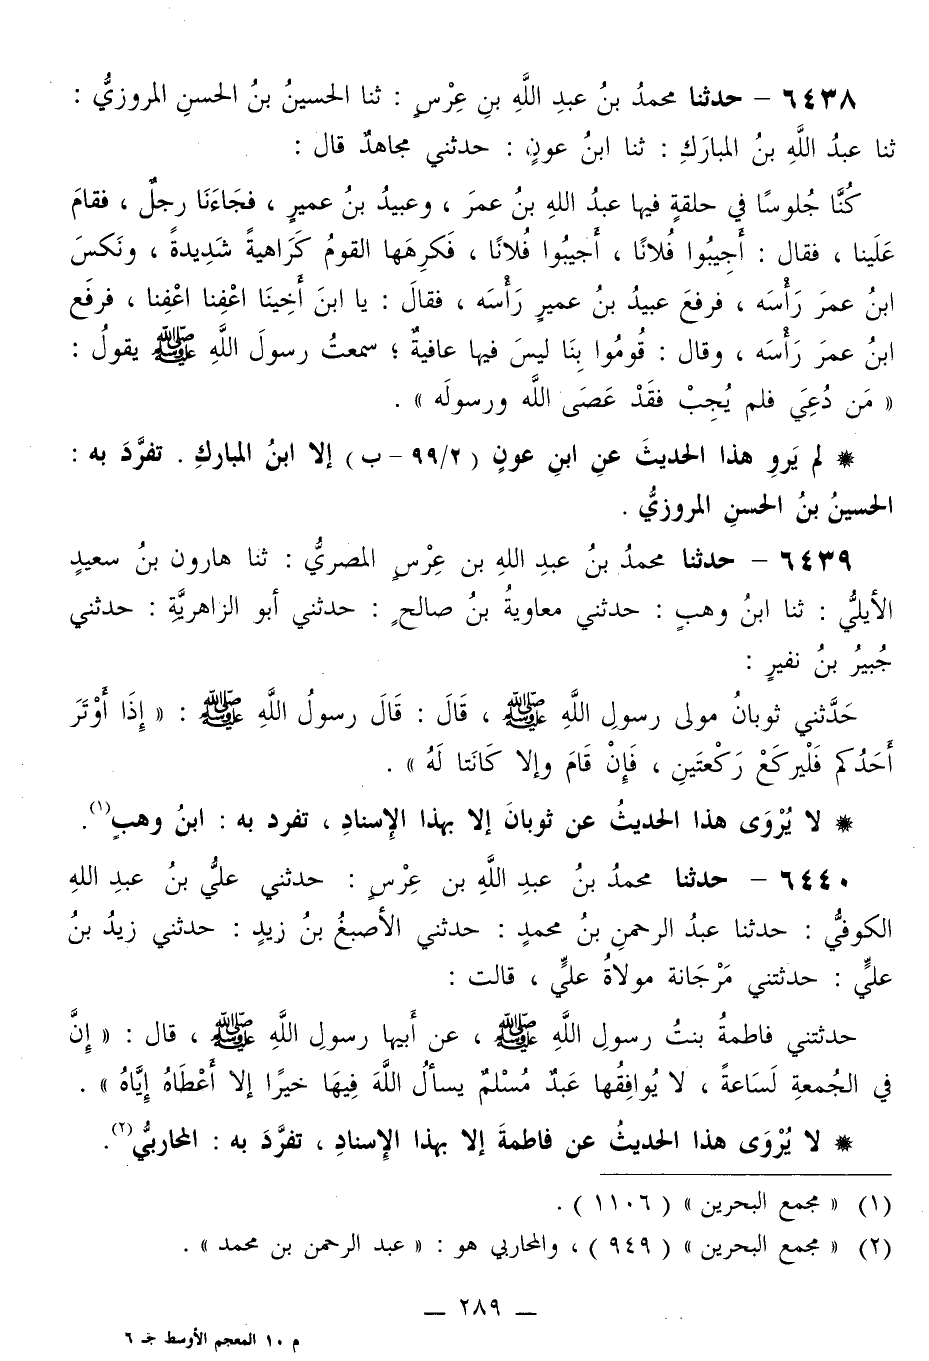 ٦٤٣٨ - حدثنا محمدُ بنُ عبدِ اللَّهِ بنِ عِرْسٍ : ثنا الحسينُ بنُ الحسنِ المروزيُّ :
ثنا عبدُ اللَّهِ بنُ المبارَكِ : ثنا ابنُ عونٍ : حدثني مجاهدٌ قال :
كُنَّا جُلوسًا في حلقةٍ فيها عبدُ اللهِ بنُ عمرَ ، وعبيدُ بنُ عميرٍ ، فجاءَنَا رجلٌ ، فقامَ
عَلَينا ، فقال : أَجِيبُوا فُلانًا ، أَجيبُوا فُلانًا ، فَكرِهَها القومُ كَرَاهيةً شَدِيدةً ، ونَكسَ
ابنُ عمرَ رَأْسَه ، فرفعَ عبيدُ بنُ عميرٍ رَأْسَه ، فقالَ : يا ابنَ أَخِينَا اعْفِنا اعْفِنا ، فرفَع
ابنُ عمرَ رَأْسَه ، وقال : قُومُوا بِنَا ليسَ فيها عافيةٌ ؛ سمعتُ رسولَ اللَّهِ ﷺ يقولُ :
« مَن دُعِيَ فلم يُجِبْ فقَدْ عَصَى اللَّه ورسولَه » .
* لم يَروِ هذا الحديثَ عنِ ابنِ عونٍ ( ٩٩/٢ - ب ) إلا ابنُ المباركِ . تفرَّدَ به :
الحسينُ بنُ الحسنِ المروزيُّ .
٦٤٣٩ - حدثنا محمدُ بنُ عبدِ اللهِ بن عِرْسٍ المصريُّ : ثنا هارون بنُ سعيدٍ
الأيليُّ : ثنا ابنُ وهبٍ : حدثني معاويةُ بنُ صالحٍ : حدثني أبو الزاهريَّةِ : حدثني
جُبيرُ بنُ نفيرٍ :
حَدَّثني ثوبانُ مولى رسولِ اللَّهِ ﷺ ، قَالَ : قَالَ رسولُ اللَّهِ ﷺ : « إِذَا أَوْتَرَ
أَحَدُكم فَلْيركَعْ رَكْعتَينِ ، فَإِنْ قَامَ وإلا كَانَتا لَهُ » .
* لا يُرْوَى هذا الحديثُ عن ثوبانَ إلا بهذا الإسنادِ ، تفرد به : ابنُ وهبٍ(١).
٦٤٤٠ - حدثنا محمدُ بنُ عبدِ اللَّهِ بن عِرْسٍ : حدثني عليُّ بنُ عبدِ اللهِ
الكوفيُّ : حدثنا عبدُ الرحمنِ بنُ محمدٍ : حدثني الأصبغُ بنُ زيدٍ : حدثني زيدُ بنُ
عليٍّ : حدثتني مَرْجَانة مولاةُ عليٍّ ، قالت :
حدثتني فاطمةُ بنتُ رسولِ اللَّهِ ﷺ ، عن أَبيها رسولِ اللَّهِ ﷺ ، قال : « إِنَّ
في الجُمعةِ لَسَاعةً ، لا يُوافِقُها عَبدٌ مُسْلمٌ يسألُ اللَّهَ فِيهَا خيرًا إلا أَعْطَاهُ إِيَّاهُ » .
* لا يُرْوَى هذا الحديثُ عن فاطمةَ إلا بهذا الإسنادِ ، تفرَّدَ به : المحاربيُّ(٢).
(١) « مجمع البحرين » ( ١١٠٦ ) .
(٢) « مجمع البحرين » ( ٩٤٩ ) ، والمحاربي هو : « عبد الرحمن بن محمد » .
— ٢٨٩ —
م ١٠ المعجم الأوسط جـ ٦